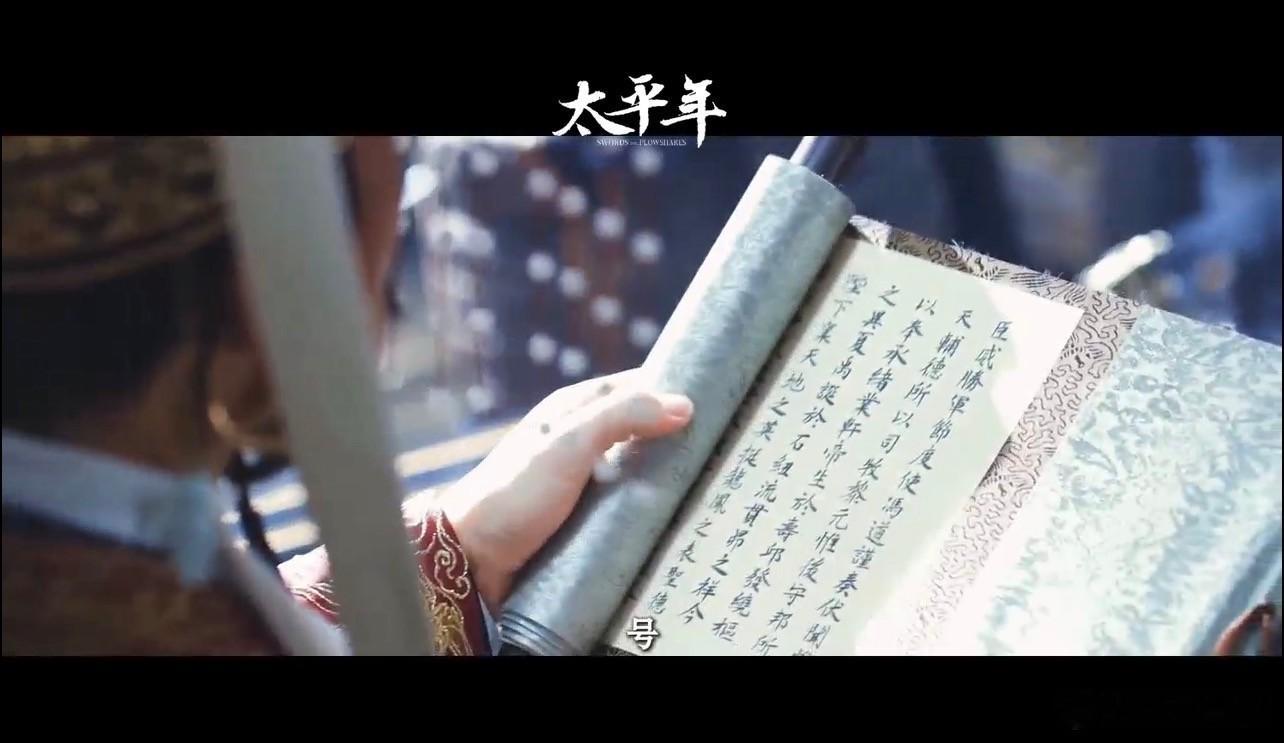 太平年
SWORDS INTO PLOWSHARES
臣威勝軍節度使馮道謹奏伏聞
天輔德所以司牧黎元惟後守邦所
以奉承緒業軒帝生於壽邱發繞樞
之異夏禹誕於石紐流貫昴之祥今
聖下稟天地之英挺龍鳳之表聖德
号